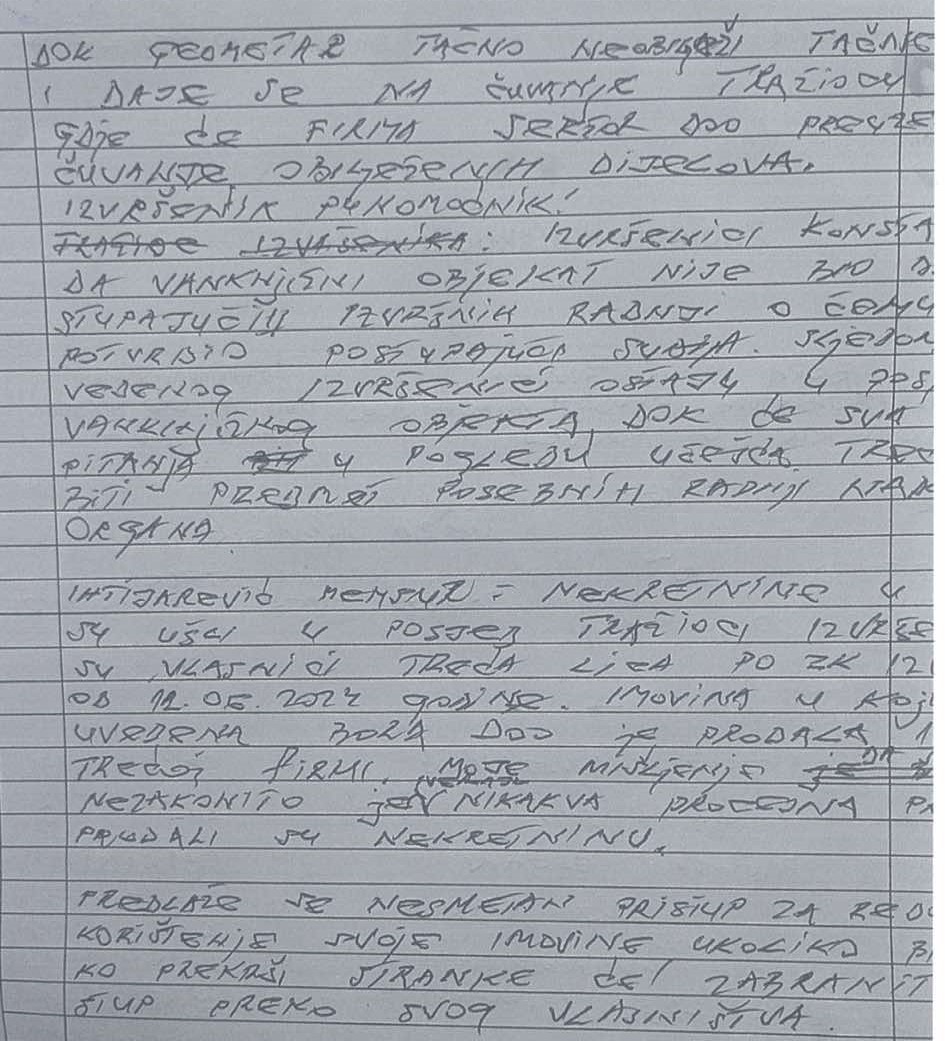 DOK GEOMETAR TAČNO NEOBILJEŽI TAČNE
I DAJE SE NA ČUVANJE TRAŽIOCU
GDJE ĆE FIRMA DOO PREUZE
ČUVANJE OBILJEŽENIH DIJELOVA.
IZVRŠENIK PUNOMOĆNIK:
TRAŽIOC IZVRŠENIKA: IZVRŠENICI KONSTA
DA VANKNJIŽNI OBJEKAT NIJE BIO
STUPAJUĆIH IZVRŠNIH RADNJI O ČEMU
POTVRDIO POSTUPAJUĆI SUDIJA. SLJEDOM
VEDENOG IZVRŠENIĆ OSTAJU U POS
VANKNJIŽNOG OBJEKTA, DOK ĆE SVA
PITANJA U POGLEDU UČEŠĆA TREĆ
BITI PREDMET POSEBNIH RADNJI
ORGANA
IHTIJAREVIĆ MENSUR = NEKRETNINE U
SU UŠLI U POSJED TRAŽIOCI IZVRŠE
SU VLASNICI TREĆA LICA PO ZK IZ
OD 12.06.2024 GODINE. IMOVINA U KOJ
UVEDENA BORA DOO JE PRODALA
TREĆOJ FIRMI. MOJE MIŠLJENJE JE DA
NEZAKONITO JER NIKAKVA PROCEDNA
PRODALI SU NEKRETNINU.
PREDLAŽE SE NESMETAN PRISTUP ZA RED
KORIŠTENJE SVOJE IMOVINE UKOLIKO
KO PREKRŠI STRANKE ĆE ZABRANIT
STUP PREKO SVOG VLASNIŠTVA.